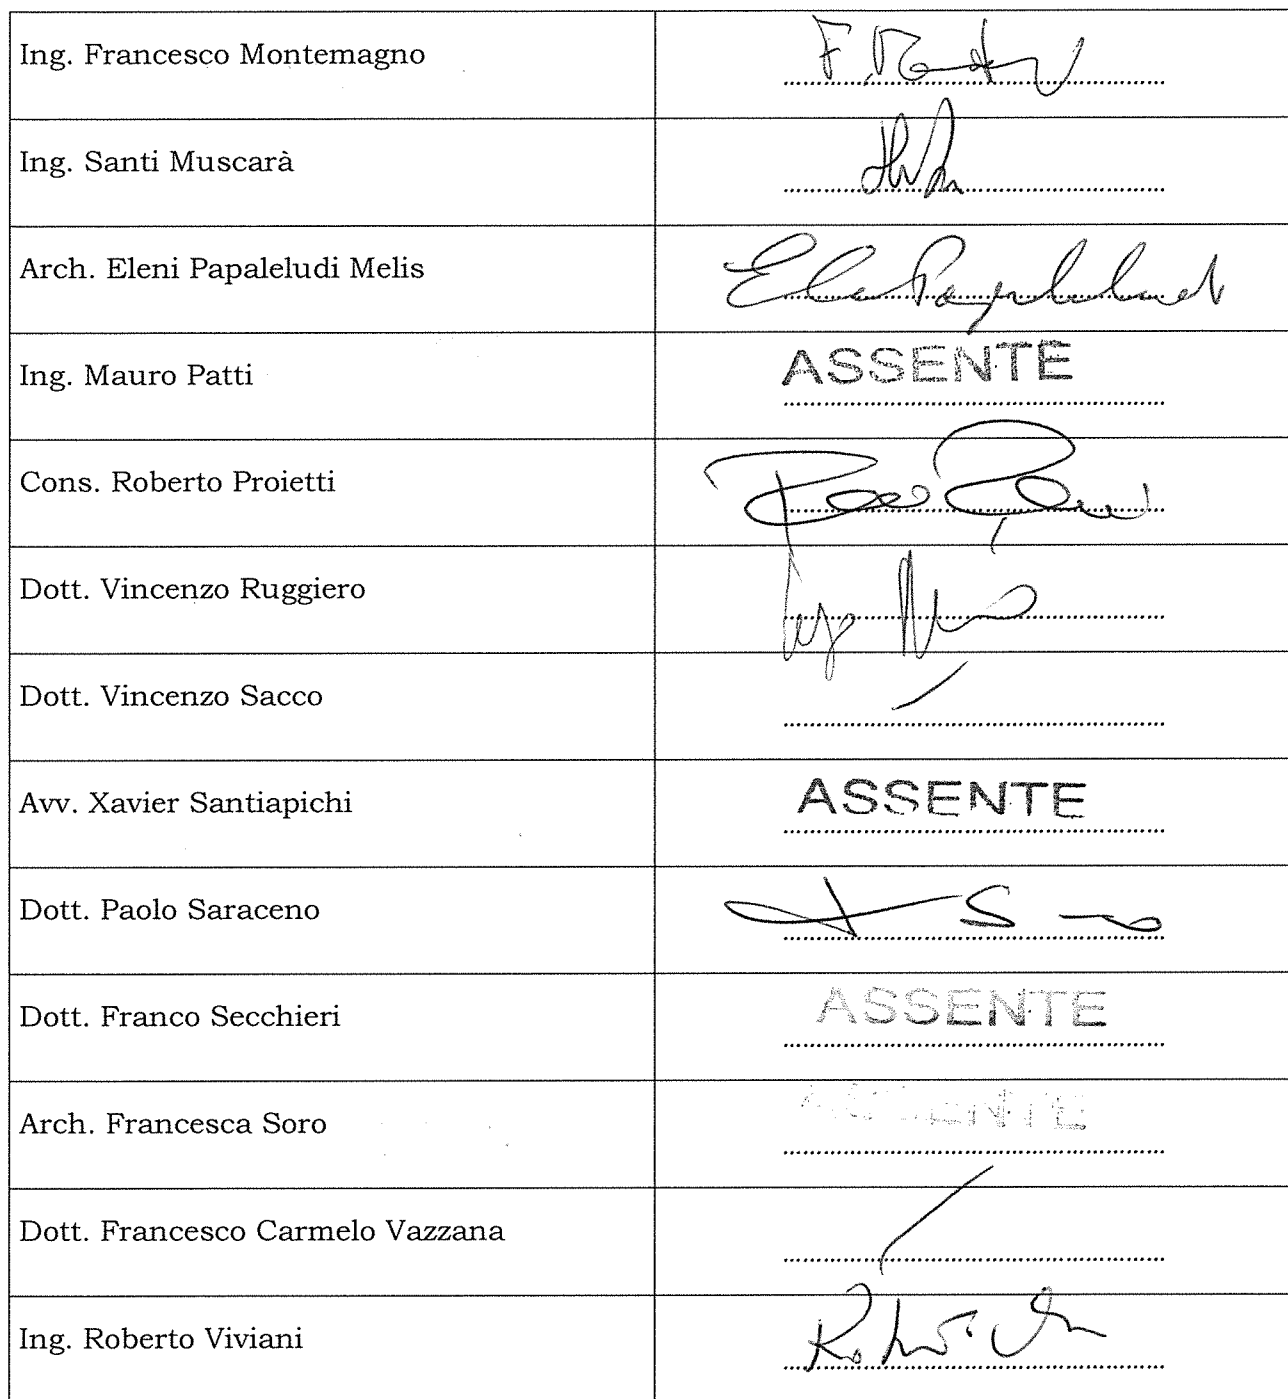 Ing. Francesco Montemagno
Ing. Santi Muscarà
Arch. Eleni Papaleludi Melis
Ing. Mauro Patti ASSENTE
Cons. Roberto Proietti
Dott. Vincenzo Ruggiero
Dott. Vincenzo Sacco
Avv. Xavier Santiapichi ASSENTE
Dott. Paolo Saraceno
Dott. Franco Secchieri ASSENTE
Arch. Francesca Soro ASSENTE
Dott. Francesco Carmelo Vazzana
Ing. Roberto Viviani